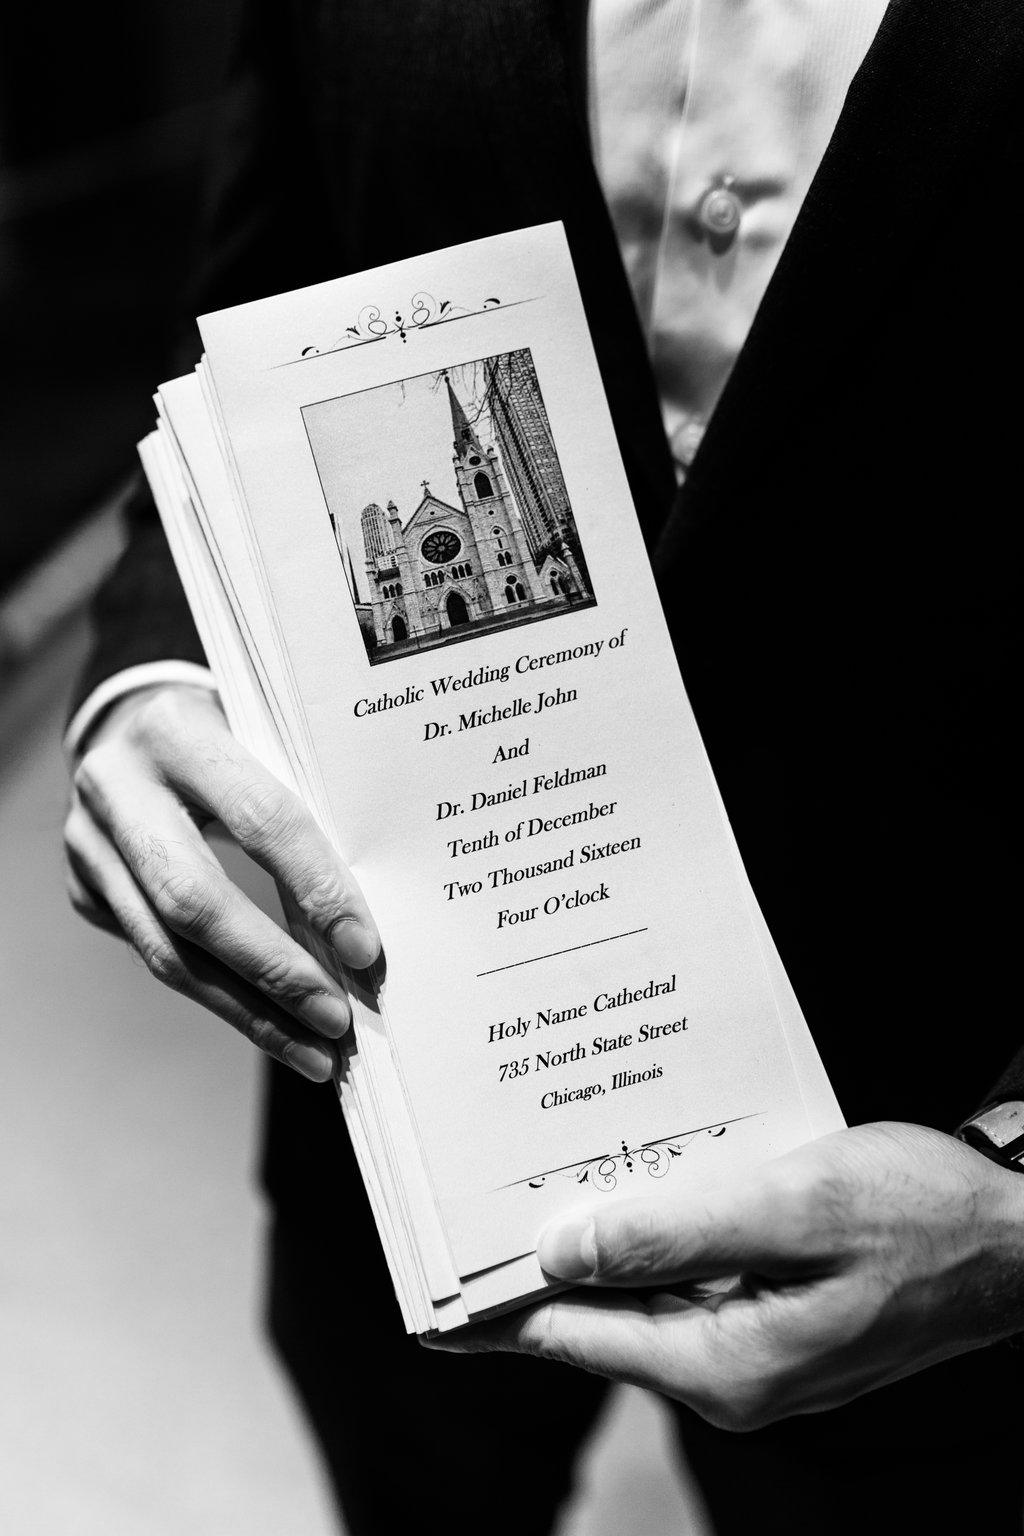 Catholic Wedding Ceremony of
Dr. Michelle John
And
Dr. Daniel Feldman
Tenth of December
Two Thousand Sixteen
Four O'clock
Holy Name Cathedral
735 North State Street
Chicago, Illinois